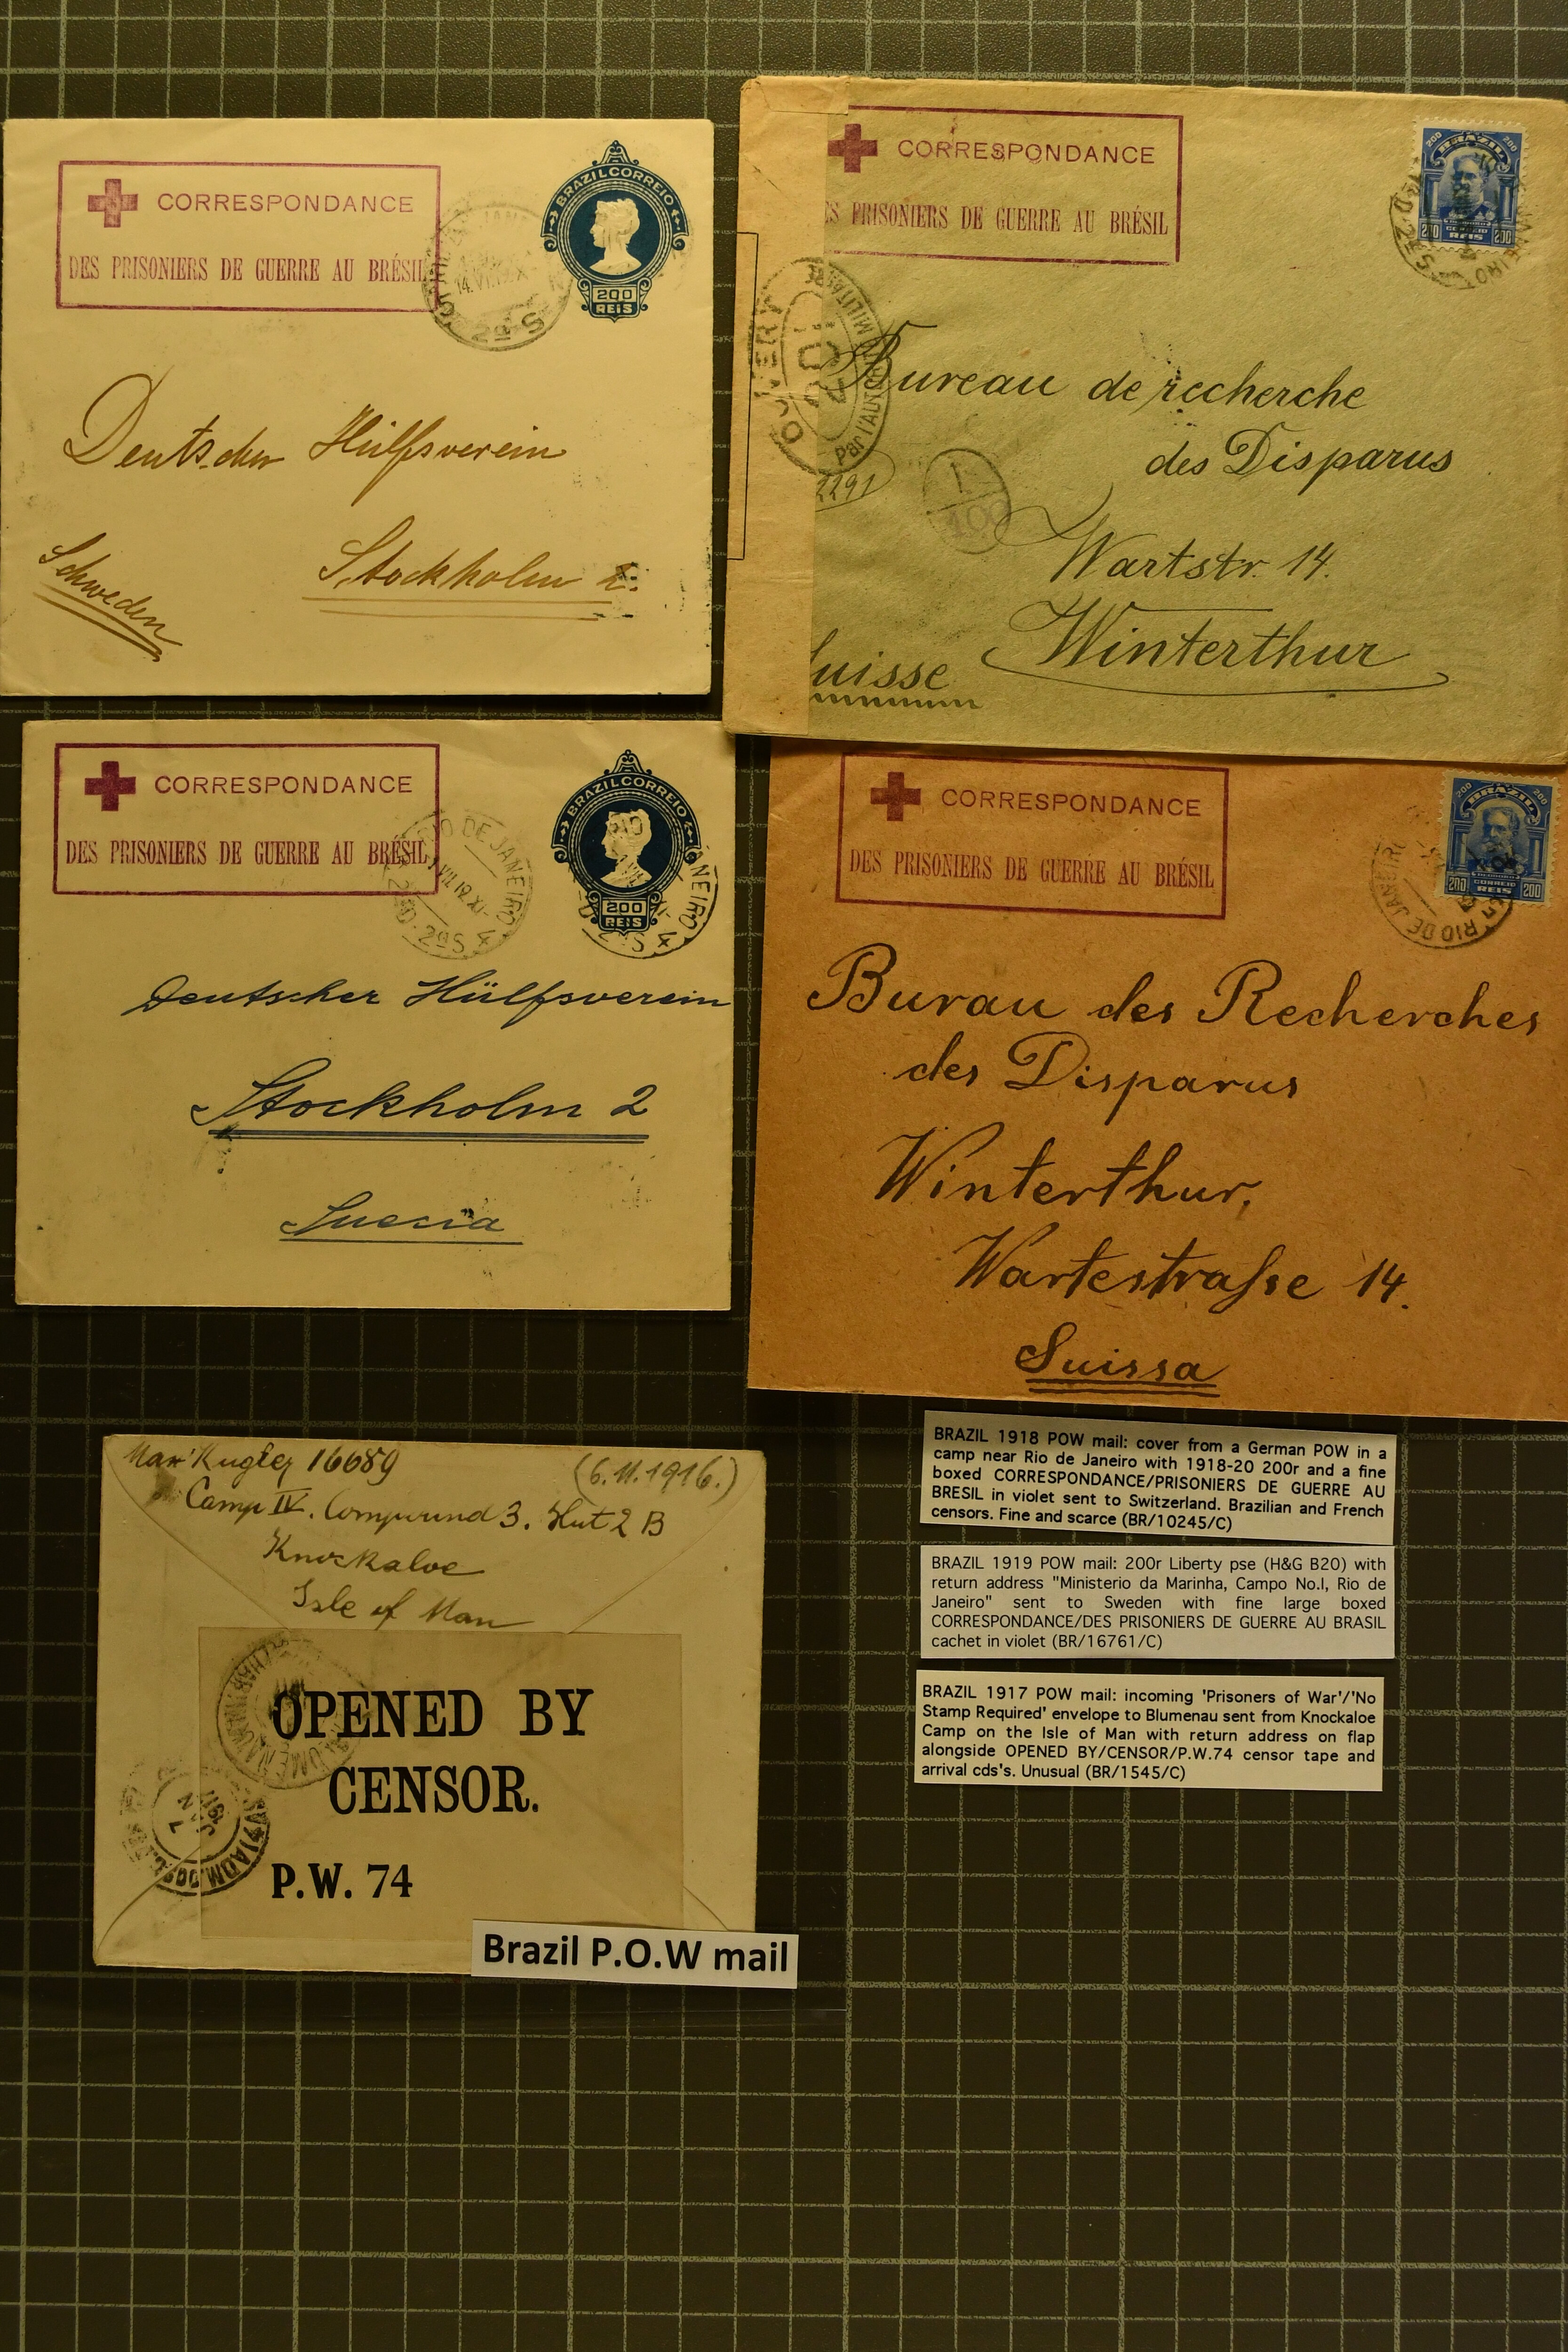 CORRESPONDANCE
DES PRISONIERS DE GUERRE AU BRÉSIL
BRAZIL CORREIO
200
REIS
14.VI
2ª S
Deutscher Hülfsverein
Stockholm 2.
Schweden
CORRESPONDANCE
ES PRISONIERS DE GUERRE AU BRÉSIL
200 BRAZIL 200
CORREIO
200 REIS 200
OUVERT
Par l'AUTORITÉ MILITAIRE
2291
1
400
Bureau de recherche
des Disparus
Wartstr. 14.
Winterthur
uisse
CORRESPONDANCE
DES PRISONIERS DE GUERRE AU BRÉSIL
RIO DE JANEIRO
2ªS 4
BRAZIL CORREIO
200
REIS
Deutscher Hülfsverein
Stockholm 2
Suecia
CORRESPONDANCE
DES PRISONIERS DE GUERRE AU BRÉSIL
200 BRAZIL 200
CORREIO
200 REIS 200
RIO DE JANEIRO
Burau des Recherches
des Disparus
Winterthur,
Wartestraße 14.
Suissa
Max Kugler 16689
(6.11.1916.)
Camp IV. Compound 3. Hut 2 B
Knockaloe
Isle of Man
BLUMENAU
OPENED BY
CENSOR.
P.W. 74
7
JAN
1917
Brazil P.O.W mail
BRAZIL 1918 POW mail: cover from a German POW in a
camp near Rio de Janeiro with 1918-20 200r and a fine
boxed CORRESPONDANCE/PRISONIERS DE GUERRE AU
BRESIL in violet sent to Switzerland. Brazilian and French
censors. Fine and scarce (BR/10245/C)
BRAZIL 1919 POW mail: 200r Liberty pse (H&G B20) with
return address "Ministerio da Marinha, Campo No.I, Rio de
Janeiro" sent to Sweden with fine large boxed
CORRESPONDANCE/DES PRISONIERS DE GUERRE AU BRASIL
cachet in violet (BR/16761/C)
BRAZIL 1917 POW mail: incoming 'Prisoners of War'/'No
Stamp Required' envelope to Blumenau sent from Knockaloe
Camp on the Isle of Man with return address on flap
alongside OPENED BY/CENSOR/P.W.74 censor tape and
arrival cds's. Unusual (BR/1545/C)